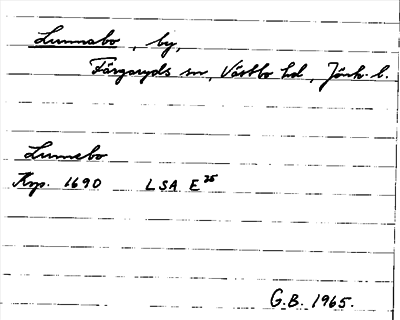 Lunnabo, by,
Färgaryds sn, Västbo hd, Jönk. l.
Lunnebo
Krp. 1690 LSA E25
G.B. 1965.